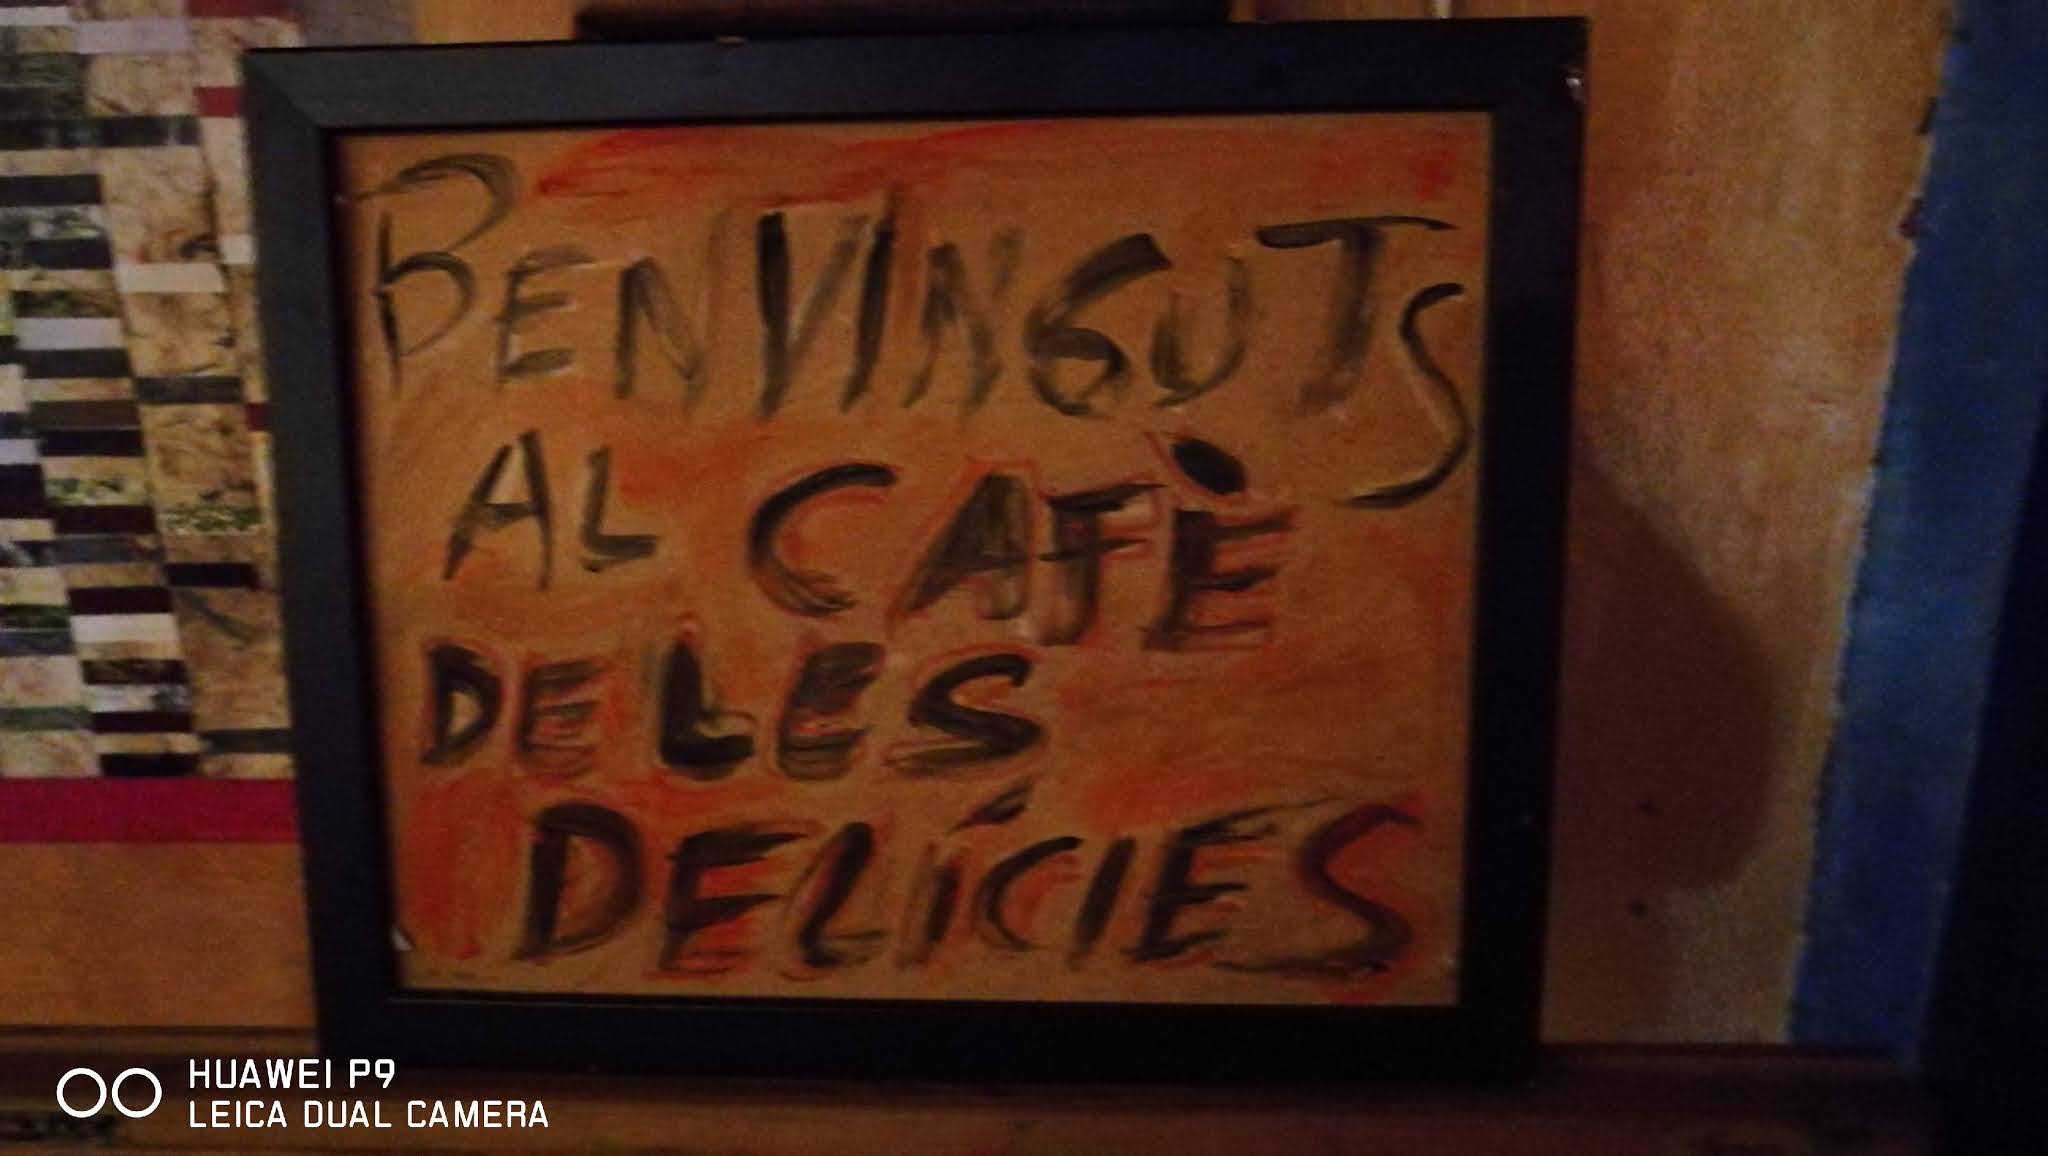 BENVINGUTS
AL CAFÈ
DE LES
DELÍCIES
HUAWEI P9
LEICA DUAL CAMERA